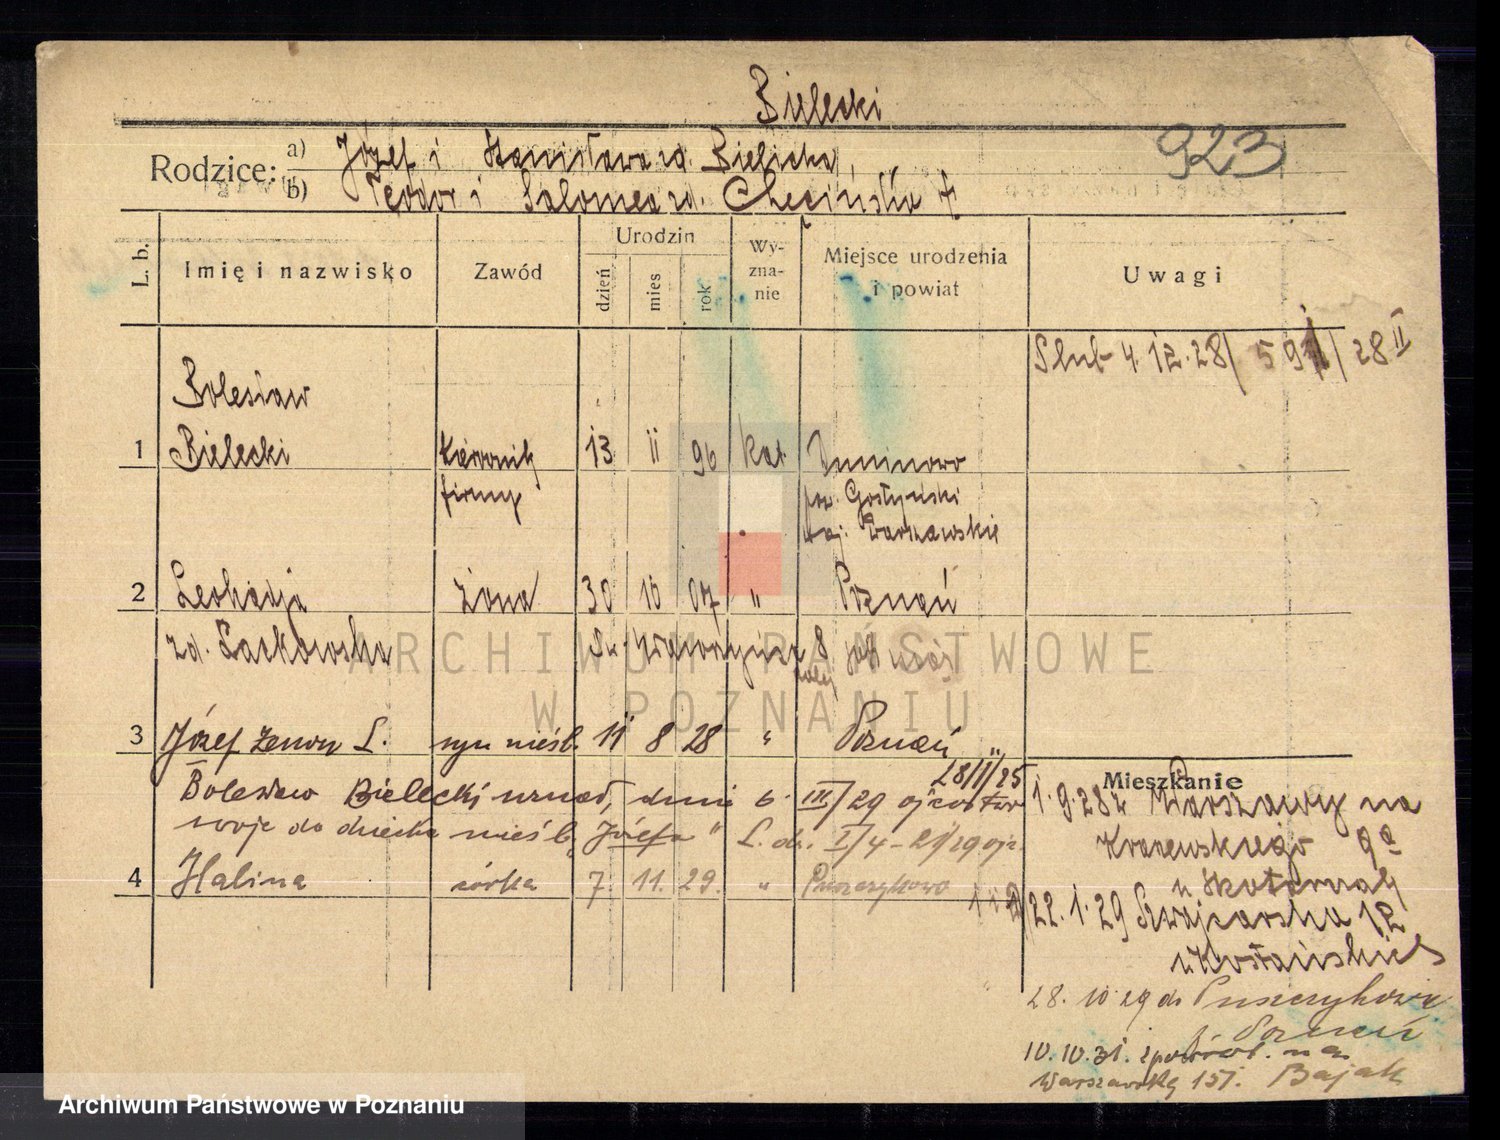 Bielecki
923
Rodzice: a) Józef i Stanisława zd. Bielicka
b) Teodor i Salomea zd. Chęcińska
L. b. Imię i nazwisko Zawód Urodzin dzień mies rok Wy-zna-nie Miejsce urodzenia i powiat Uwagi
Ślub 4.12.28 / 28 II
Bolesław
1 Bielecki kierownik 13 II 96 kat Duninowo
firmy pow. Gostyniski
woj. Warszawskie
2 Leokadja żona 30 10 07 " Poznań
zd. Laskowska 8
3 Józef Zenon L. syn nieśl. 11 8 28 " Poznań
Bolesław Bielecki uznał, dnia 6. III/29 ojcostwo
swoje do dziecka nieśl. "Józefa" L. dz. I/4-21/29
4 Halina córka 7. 11. 29. " Puszczykowo
Mieszkanie
1.9.28 z Warszawy na
Kraszewskiego 9a
u
22.1.29 Szwajcarska 12
u
28.10.29 do Puszczykowa
p. Poznań
10.10.31. z powrot. na
Warszawską 151. Bajak
ARCHIWUM PAŃSTWOWE
W POZNANIU
Archiwum Państwowe w Poznaniu